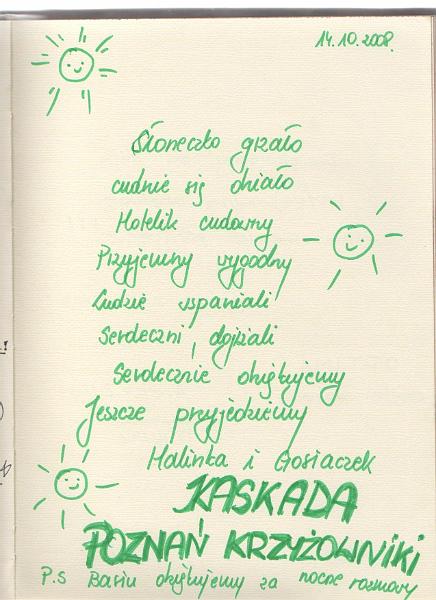 14.10.2008.
Słoneczko grzało
cudnie się działo
Hotelik cudowny
Przyjemny wygodny
Ludzie wspaniali
Serdeczni, dojrzali
Serdecznie dziękujemy
Jeszcze przyjedziemy
Halinka i Gosiaczek
KASKADA
POZNAŃ KRZYŻOWNIKI
P.S Basiu dziękujemy za nocne rozmowy